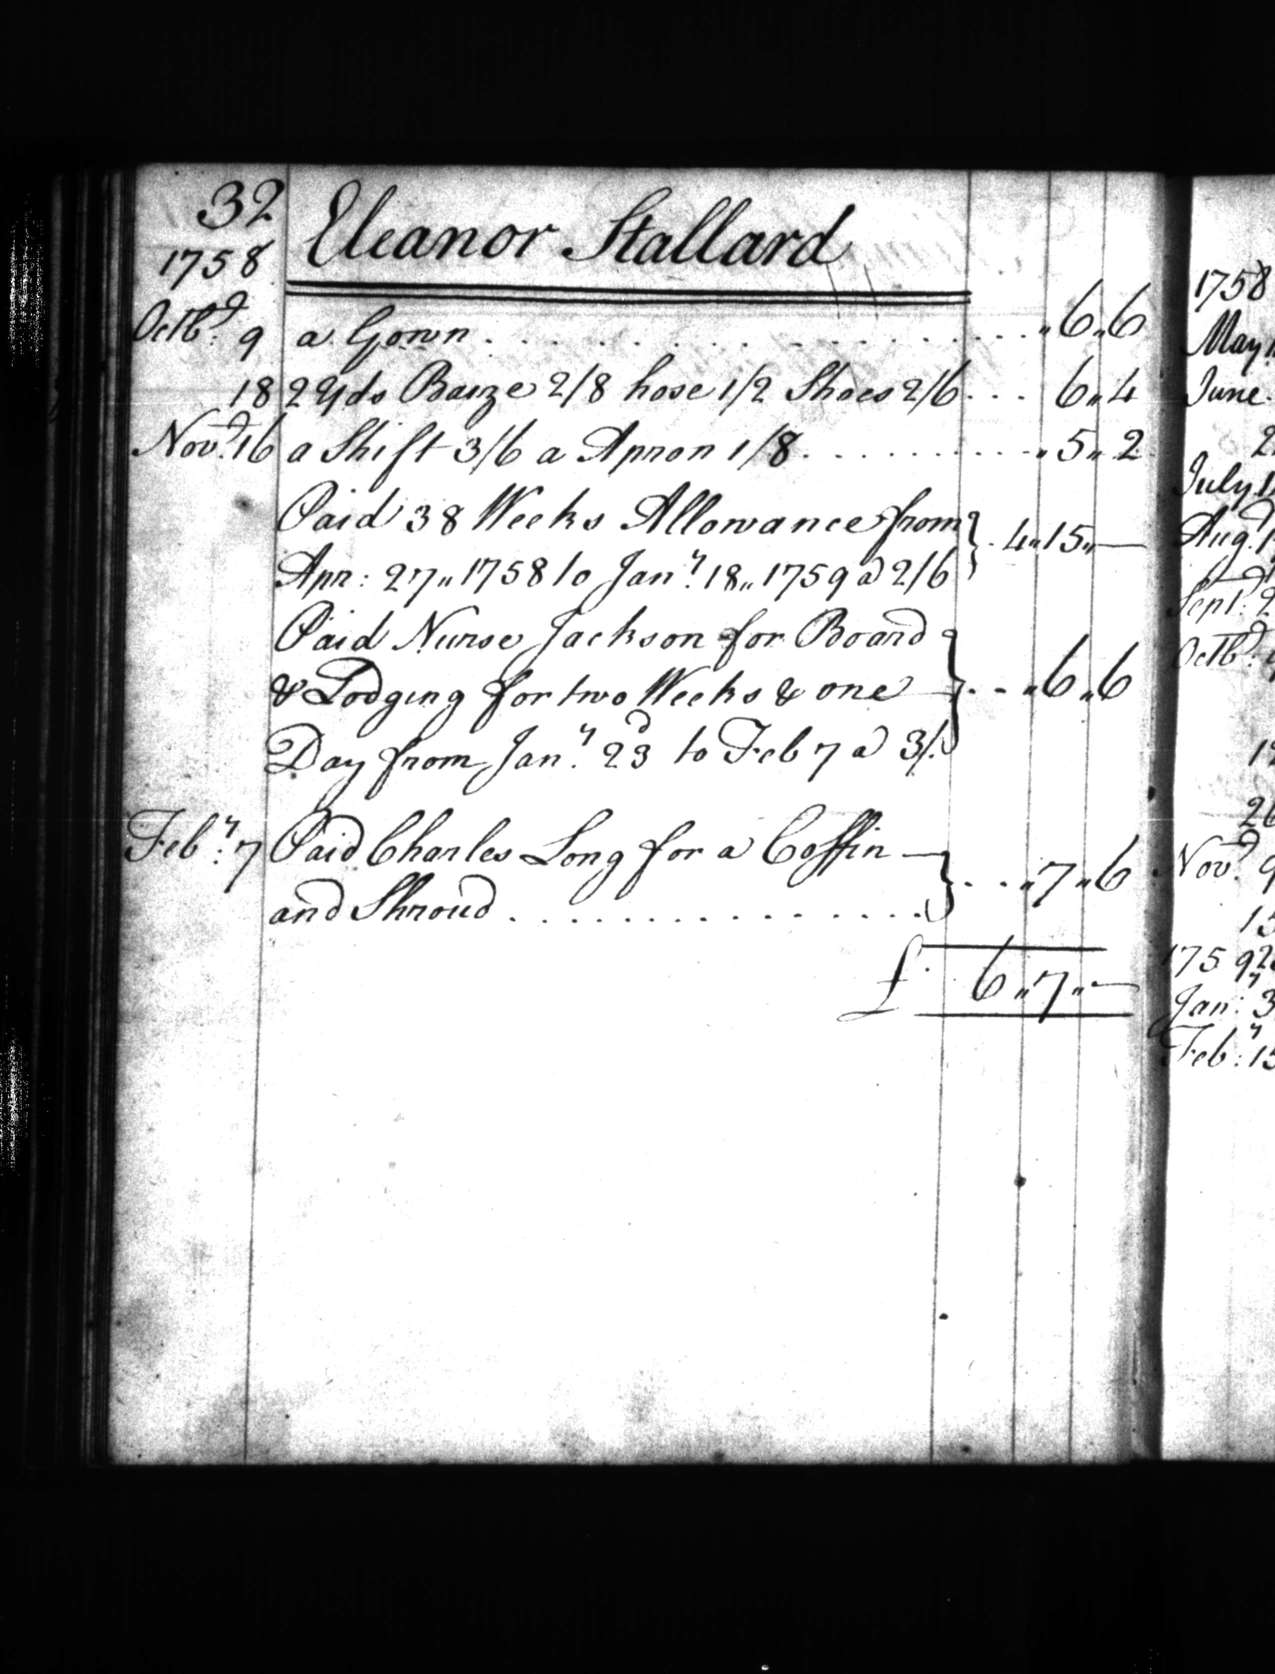 32
1758 Eleanor Stallard
Octbr. 9 a Gown . . . . . . . . . . . „6„6
18 2 Yds Baize 2/8 hose 1/2 Shoes 2/6 . . . 6„4
Novr. 16 a Shift 3/6 a Apron 1/8 . . . . . . . . . . „5„2
Paid 38 Weeks Allowance from
Apr: 27„ 1758 to Jany. 18„ 1759 a 2/6 } . 4„15„—
Paid Nurse Jackson for Board
& Lodging for two Weeks & one } . . „6„6
Day from Jany. 23d to Feb 7 a 3/.
Feby: 7 Paid Charles Long for a Coffin —
and Shroud . . . . . . . . . . . . . . . } . . . „7„6
£. 6„7„—
1758
May
June
July
Augt
Sept
Octbr
Novr.
1759
Jany: 3
Feby: 15